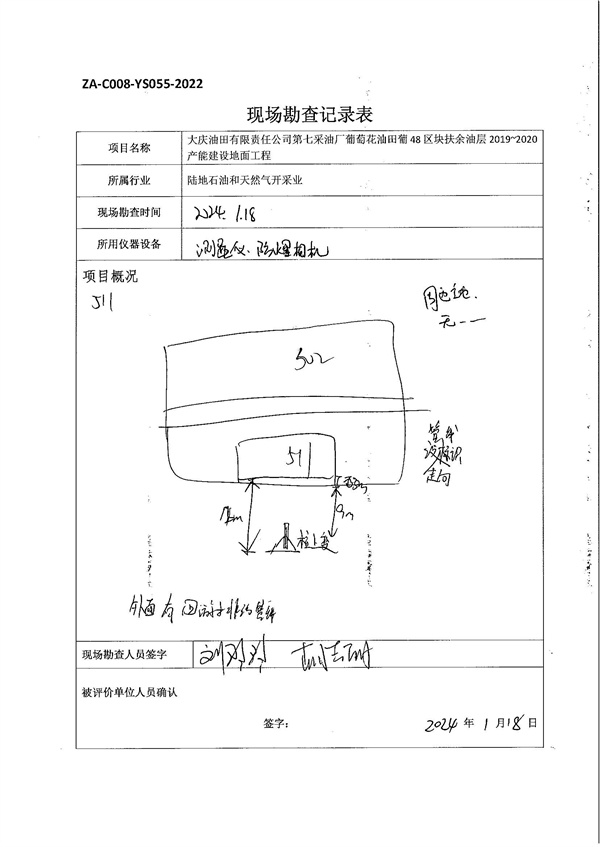 ZA-C008-YS055-2022
现场勘查记录表
项目名称
大庆油田有限责任公司第七采油厂葡萄花油田葡 48 区块扶余油层 2019~2020
产能建设地面工程
所属行业
陆地石油和天然气开采业
现场勘查时间
2024.1.18
所用仪器设备
测距仪、防爆相机
项目概况
511
无
502
511
9m
柱上变
走向
外面有
现场勘查人员签字
被评价单位人员确认
签字：
2024 年 1 月 18 日